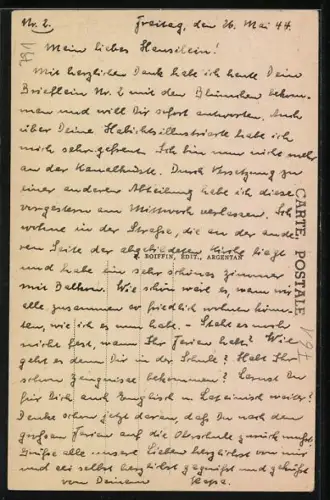 Nr. 2.
Freitag, den 26. Mai 44.
Mein liebes Hanselein!
Mit herzlichem Dank hab ich heute Deine
Brieflein Nr. 2 mit den Blümchen bekom-
men und will Dir sofort antworten. Auch
über Deine habe ich
mich sehr gefreut. Ich bin nun nicht mehr
an der Kanalküste. Durch Versetzung zu
einer anderen Abteilung habe ich diese
vorgestern am Mittwoch verlassen. Ich
wohne in der Straße, die an der ande-
ren Seite der abgebildeten Kirche liegt
und habe ein sehr schönes Zimmer
mit Balkon. Wie schön wäre es, wenn wir
alle zusammen so friedlich wohnen könn-
ten, wie ich es nun habe. - es noch
nicht fest, wann Ihr Ferien habt? Wie
geht es denn Dir in der Schule? Habt Ihr
schon Zeugnisse bekommen? Lernst Du
für Dich auch Englisch u. Lateinisch weiter?
Denke schon jetzt daran, daß Du nach den
großen Ferien auf die Oberschule zurück mußt.
Grüße alle unsere Lieben herzlichst von mir
und sei selbst herzlichst gegrüßt und geküßt
von Deinem Papa.
CARTE POSTALE
BOIFFIN, ÉDIT., ARGENTAN